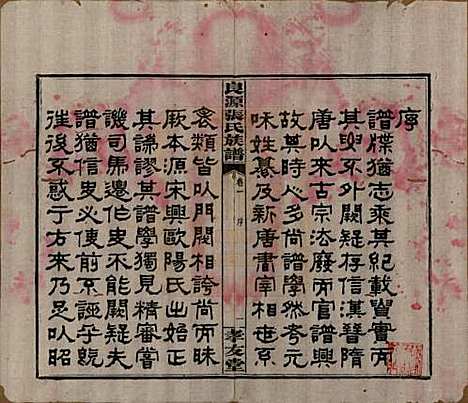 序
譜牒猶志乘其紀載貴實而
其與不外闕疑存信漢晉隋
唐以來古宗法廢而官譜興
故尊時人多尚譜學然考元
味姓纂及新唐書宰相世系
良源張氏族譜
卷一
序
一
孝友堂
衾類皆以門閥相誇尚而昧
厥本源宋興歐陽氏出始矯
其謙謬其譜學獨見精審嘗
譏司馬遷作史不能闕疑夫
譜猶信史必使前京誣乎旣
往後不惑于方來乃足以昭